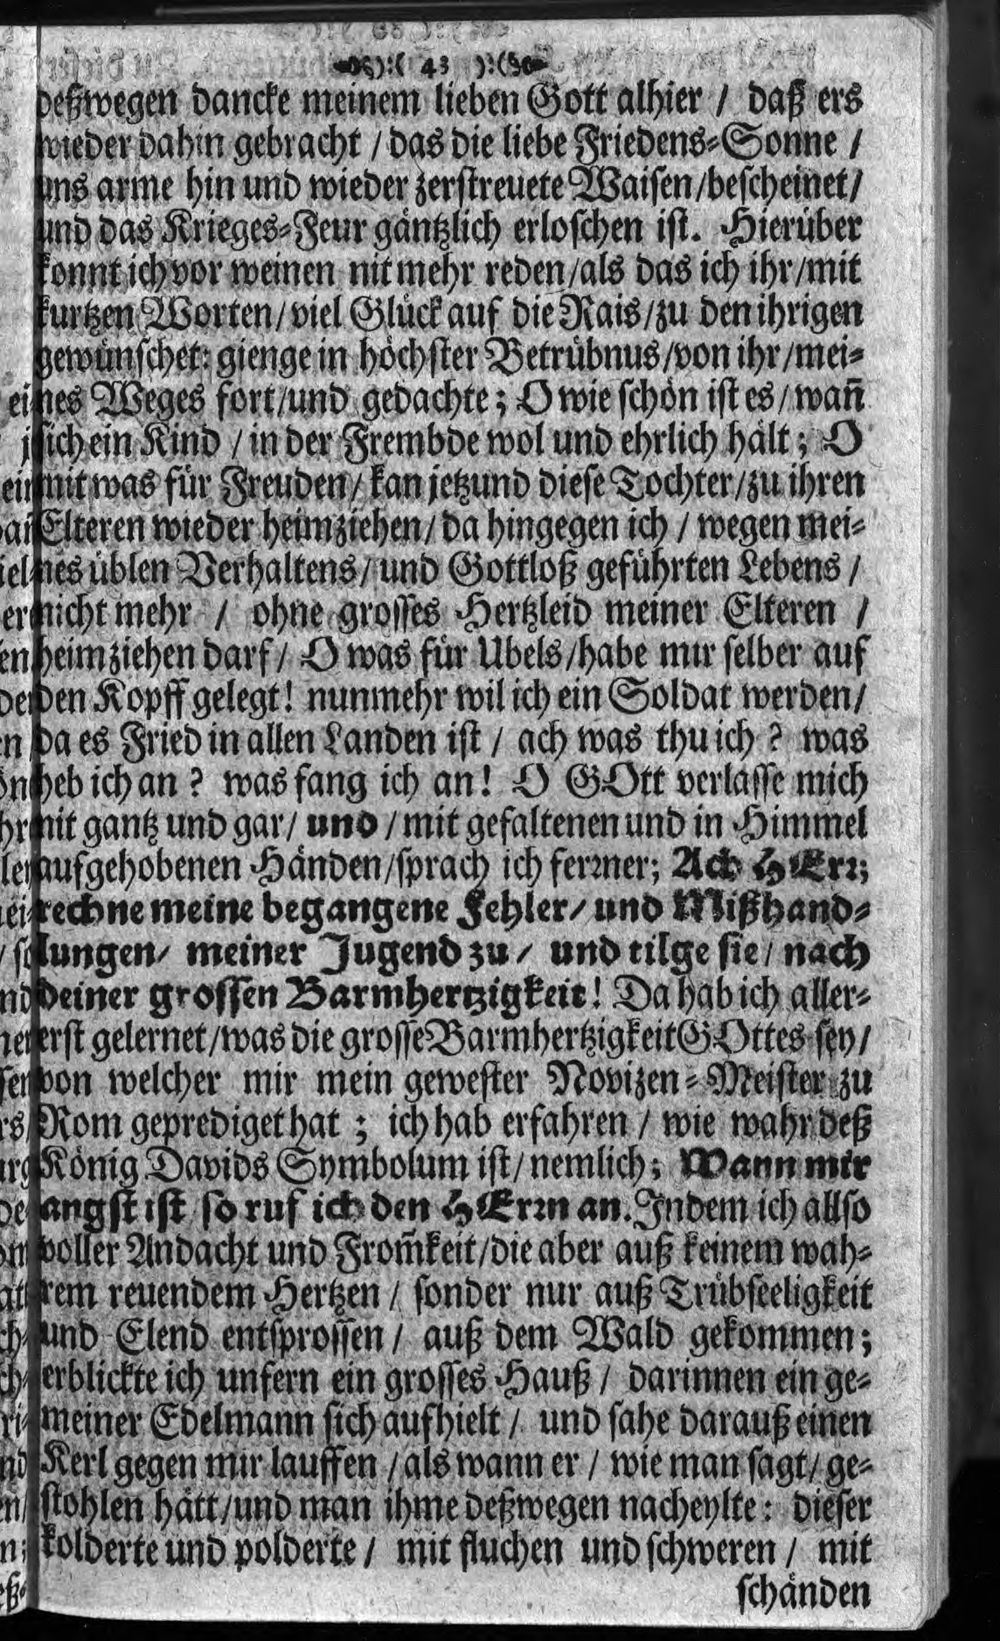 ):( 43 ):(
deßwegen dancke meinem lieben Gott alhier / daß ers
wieder dahin gebracht / das die liebe Friedens-Sonne /
uns arme hin und wieder zerstreuete Waisen/bescheinet/
und das Krieges-Feur gäntzlich erloschen ist. Hierüber
konnt ich vor weinen nit mehr reden/als das ich ihr/mit
kurtzen Worten/viel Glück auf die Rais/zu den ihrigen
gewünschet: gienge in höchster Betrübnus/von ihr/mei-
nes Weges fort/und gedachte; O wie schön ist es/wañ
sich ein Kind / in der Frembde wol und ehrlich hält; O
mit was für Freuden/kan jetzund diese Tochter/zu ihren
Elteren wieder heimziehen/da hingegen ich / wegen mei-
nes üblen Verhaltens/und Gottloß geführten Lebens /
nicht mehr / ohne grosses Hertzleid meiner Elteren /
heimziehen darf/ O was für Ubels/habe mir selber auf
den Kopff gelegt! nunmehr wil ich ein Soldat werden/
da es Fried in allen Landen ist / ach was thu ich? was
heb ich an? was fang ich an! O GOtt verlasse mich
nit gantz und gar/ und /mit gefaltenen und in Himmel
aufgehobenen Händen/sprach ich ferꝛner; Ach HErꝛ;
rechne meine begangene Fehler/ und Mißhand-
lungen/ meiner Jugend zu/ und tilge sie/ nach
deiner grossen Barmhertzigkeit! Da hab ich aller-
erst gelernet/was die grosse Barmhertzigkeit GOttes sey/
von welcher mir mein gewester Novizen-Meister zu
Rom geprediget hat; ich hab erfahren / wie wahr deß
König Davids Symbolum ist/nemlich; Wann mir
angst ist so ruf ich den HErꝛn an. Indem ich allso
voller Andacht und From̃keit/die aber auß keinem wah-
rem reuendem Hertzen / sonder nur auß Trübseeligkeit
und Elend entsprossen / auß dem Wald gekommen;
erblickte ich unfern ein grosses Hauß / darinnen ein ge-
meiner Edelmann sich aufhielt / und sahe darauß einen
Kerl gegen mir lauffen / als wann er / wie man sagt/ ge-
stohlen hätt/und man ihme deßwegen nacheylte: dieser
kolderte und polderte / mit fluchen und schweren / mit
schänden